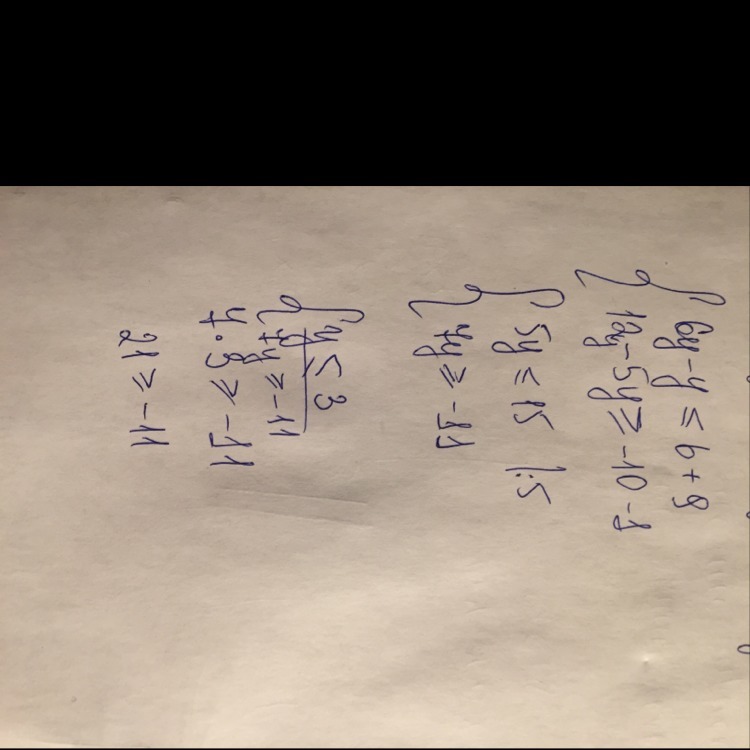 { 6y - y ≤ 6 + 9
12y - 5y ≥ -10 - 1
{ 5y ≤ 15 |:5
7y ≥ -11
{ y ≤ 3
7y ≥ -11
7 · 3 ≥ -11
21 ≥ -11